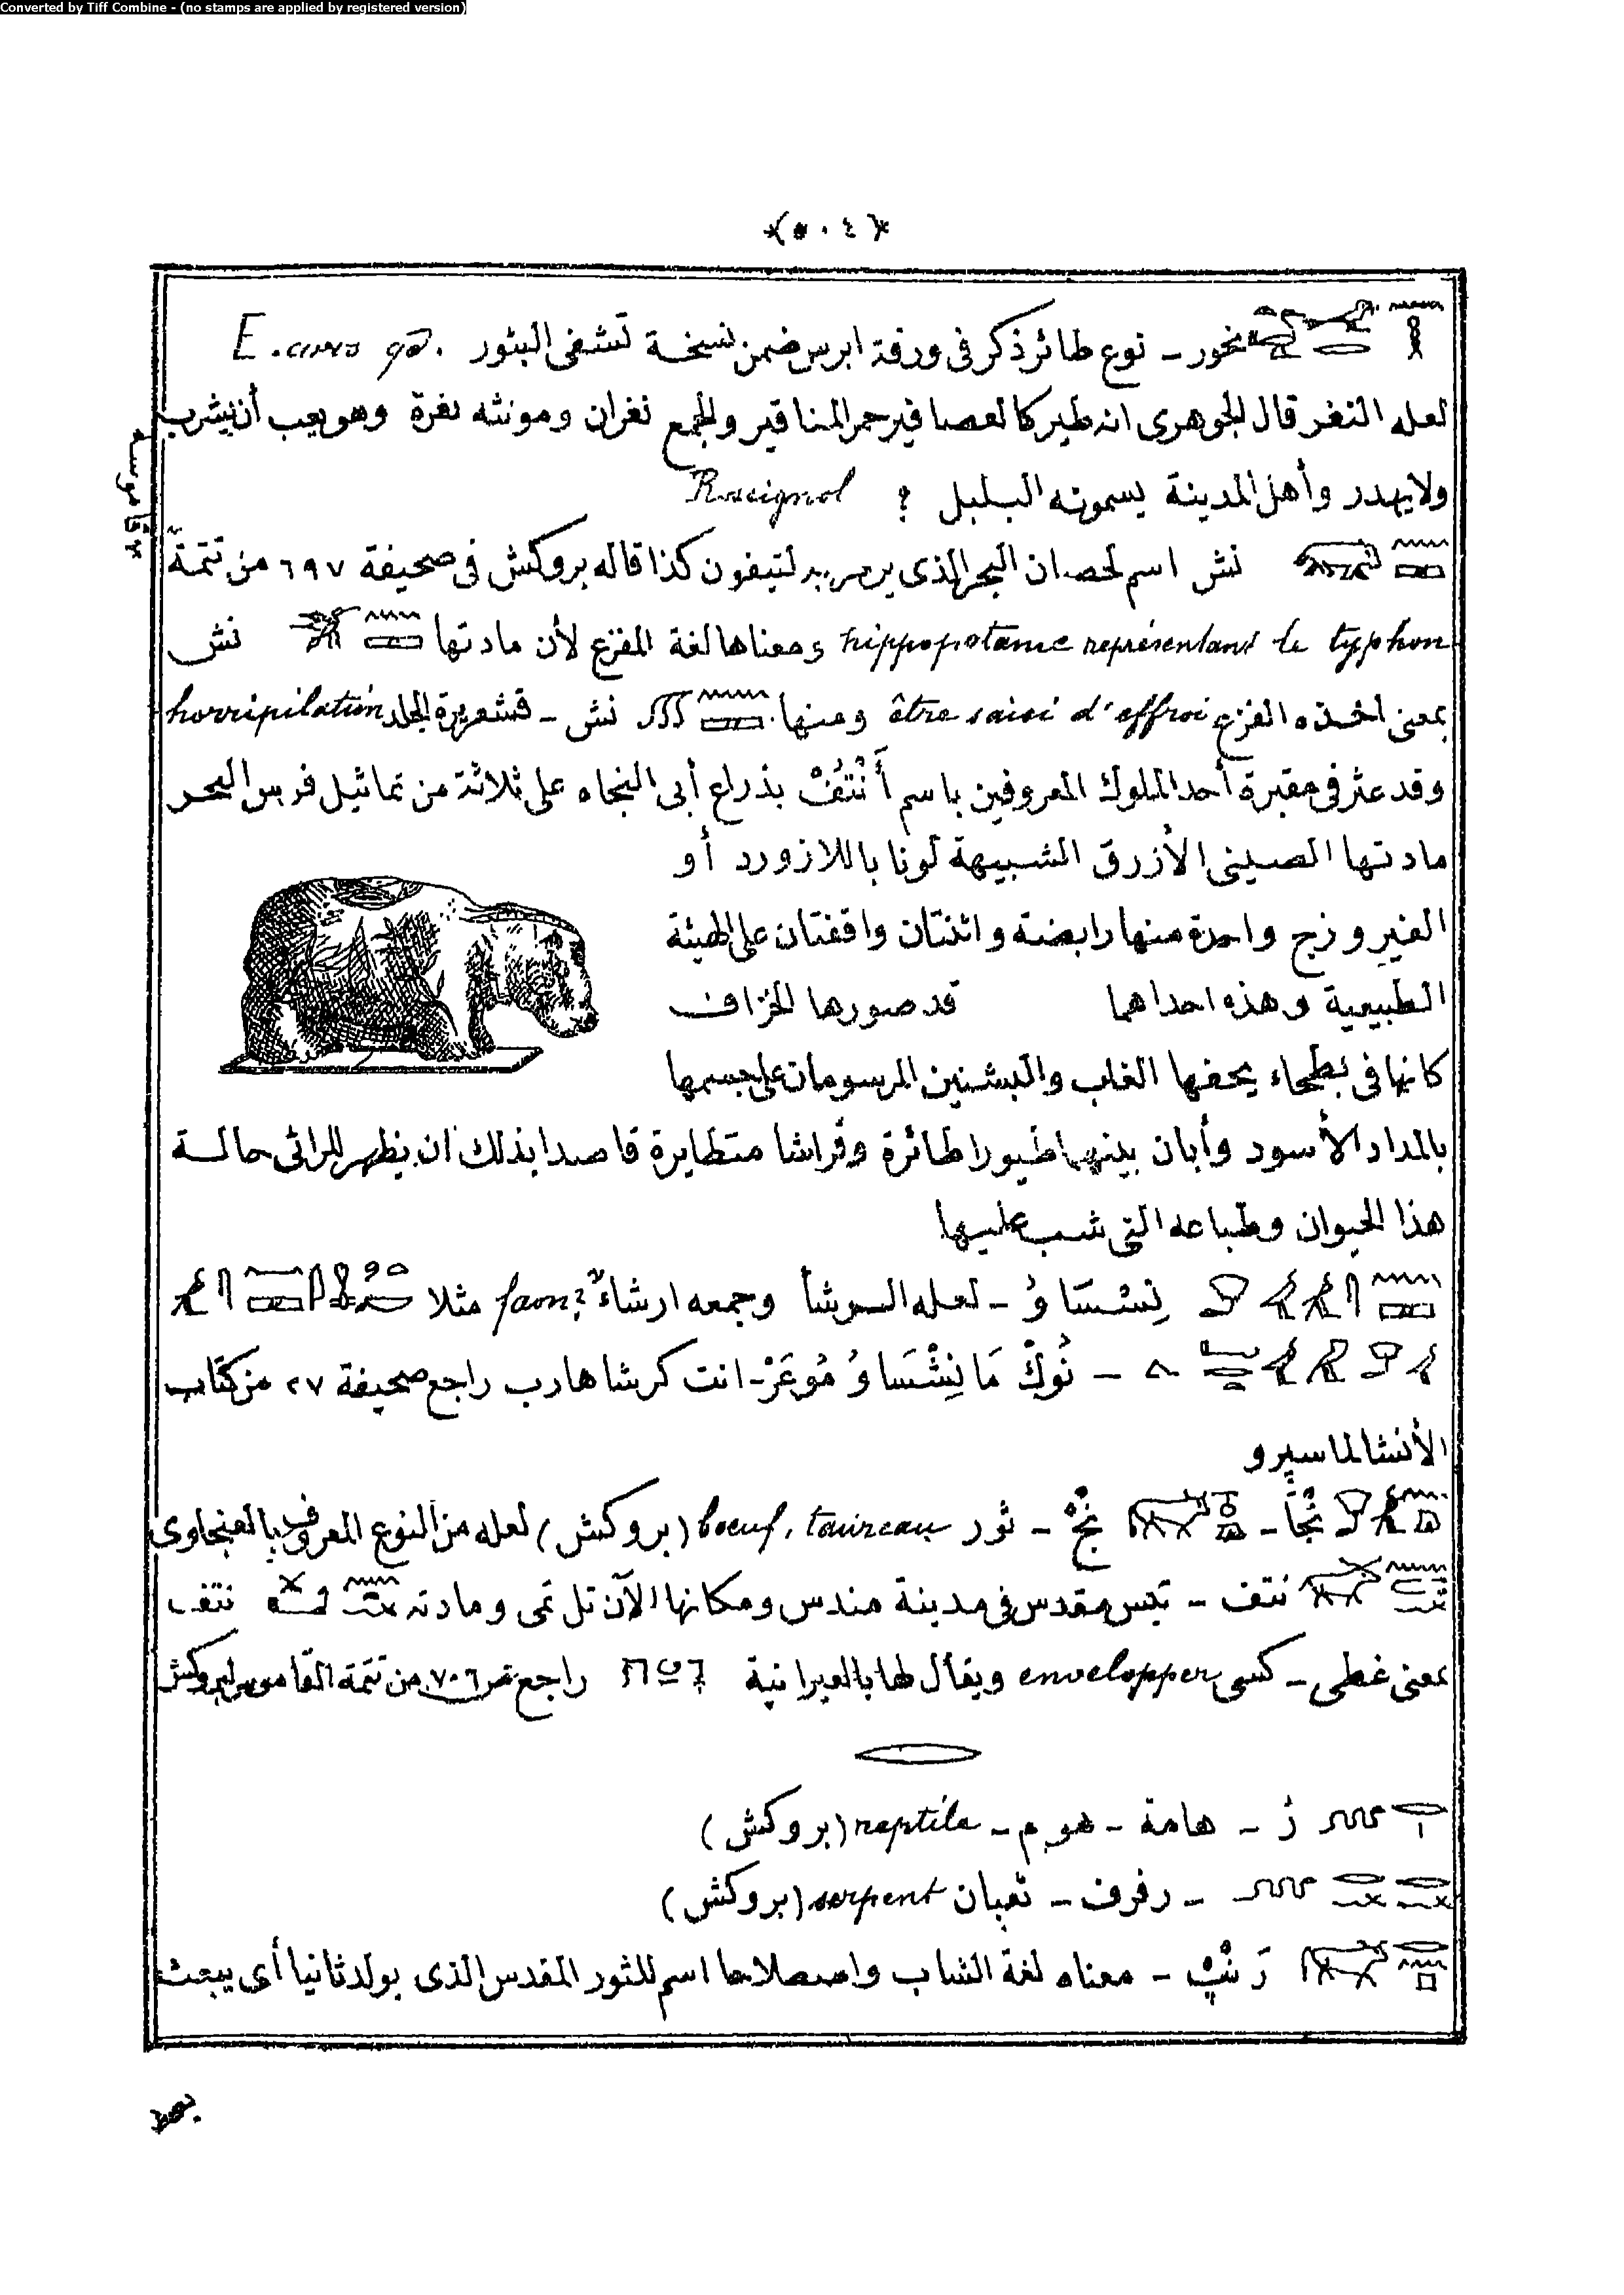 Converted by Tiff Combine - (no stamps are applied by registered version)
﴿٥٠٤﴾
نحور ـ نوع طائر ذكر فى ورقة ابرس ضمن نسخة تشفى البثور
لعله النغر قال الجوهرى انه طير كالعصافير حمر المناقير والجمع نغران ومونثه نغرة وهو يعب أن يشرب
ولا يهدر وأهل المدينة يسمونه البلبل ؟ Rossignol
نش اسم لحصان البحر الذى يرمز به لتيفون كذا قاله بروكش فى صحيفة ٦٩٧ من تتمة
قاموسه
hippopotame représentant le typhon ومعناها لغة المفزع لأن مادتها نش
بمعنى أخذه الفزع être saisi d'effroi ومنها نش ـ قشعريرة الجلد horripilation
وقد عثر فى مقبرة أحد الملوك المعروفين باسم أَنْتُفْ بذراع أبى النجاه على ثلاثة من تماثيل فرس البحر
مادتها الصينى الأزرق الشبيهة لونا باللازورد أو
الفيروزج واحدة منها رابضة واثنتان واقفتان على الهيئة
الطبيعية وهذه احداهما قد صورها الخزاف
كانها فى بطحاء يحفها الغاب والبشنين المرسومات على جسمها
بالمداد الأسود وأبان بينها طيورا طائرة وفراشا متطايرة قاصدا بذلك ان يظهر للرائى حالة
هذا الحيوان وطباعه التى شب عليها
نِشْسَاوُ ـ لعله الرشأ وجمعه ارشاء faon? مثلا
ـ نُوكْ مَا نِشْسَاوُ مُوعَرْ ـ انت كرشا هارب راجع صحيفة ٢٧ من كتاب
الأنشا لماسپرو
نْجَّا ـ نْجْ ـ ثور boeuf, taureau (بروكش) لعله من النوع المعروف بالعنجاوى
نتف ـ تيس مقدس فى مدينة مندس ومكانها الآن تل تمى ومادته نتف
بمعنى غطى ـ كسى envelopper ويقال لها بالعبرانية راجع نمر ٧٠٦ من تتمة القاموس لبروكش
رُ ـ هامة ـ هوم ـ reptile (بروكش)
ـ رفرف ـ ثعبان serpent (بروكش)
رَنْپْ ـ معناه لغة الشاب واصطلاحا اسم للثور المقدس الذى يولد ثانيا أى يبعث